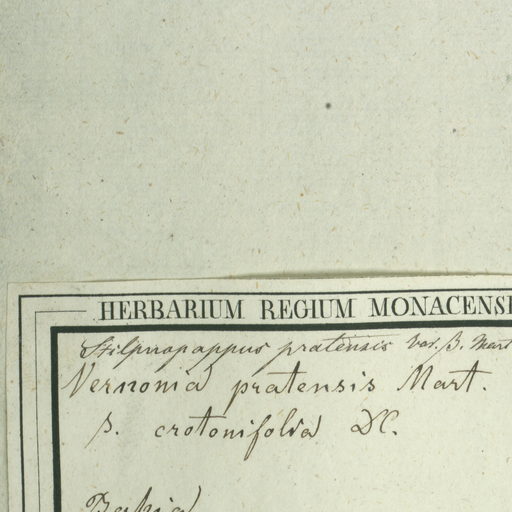 HERBARIUM REGIUM MONACENS
Stilpnopappus pratensis var. β. Mart
Vernonia pratensis Mart.
β. crotonifolia DC.
Bahia